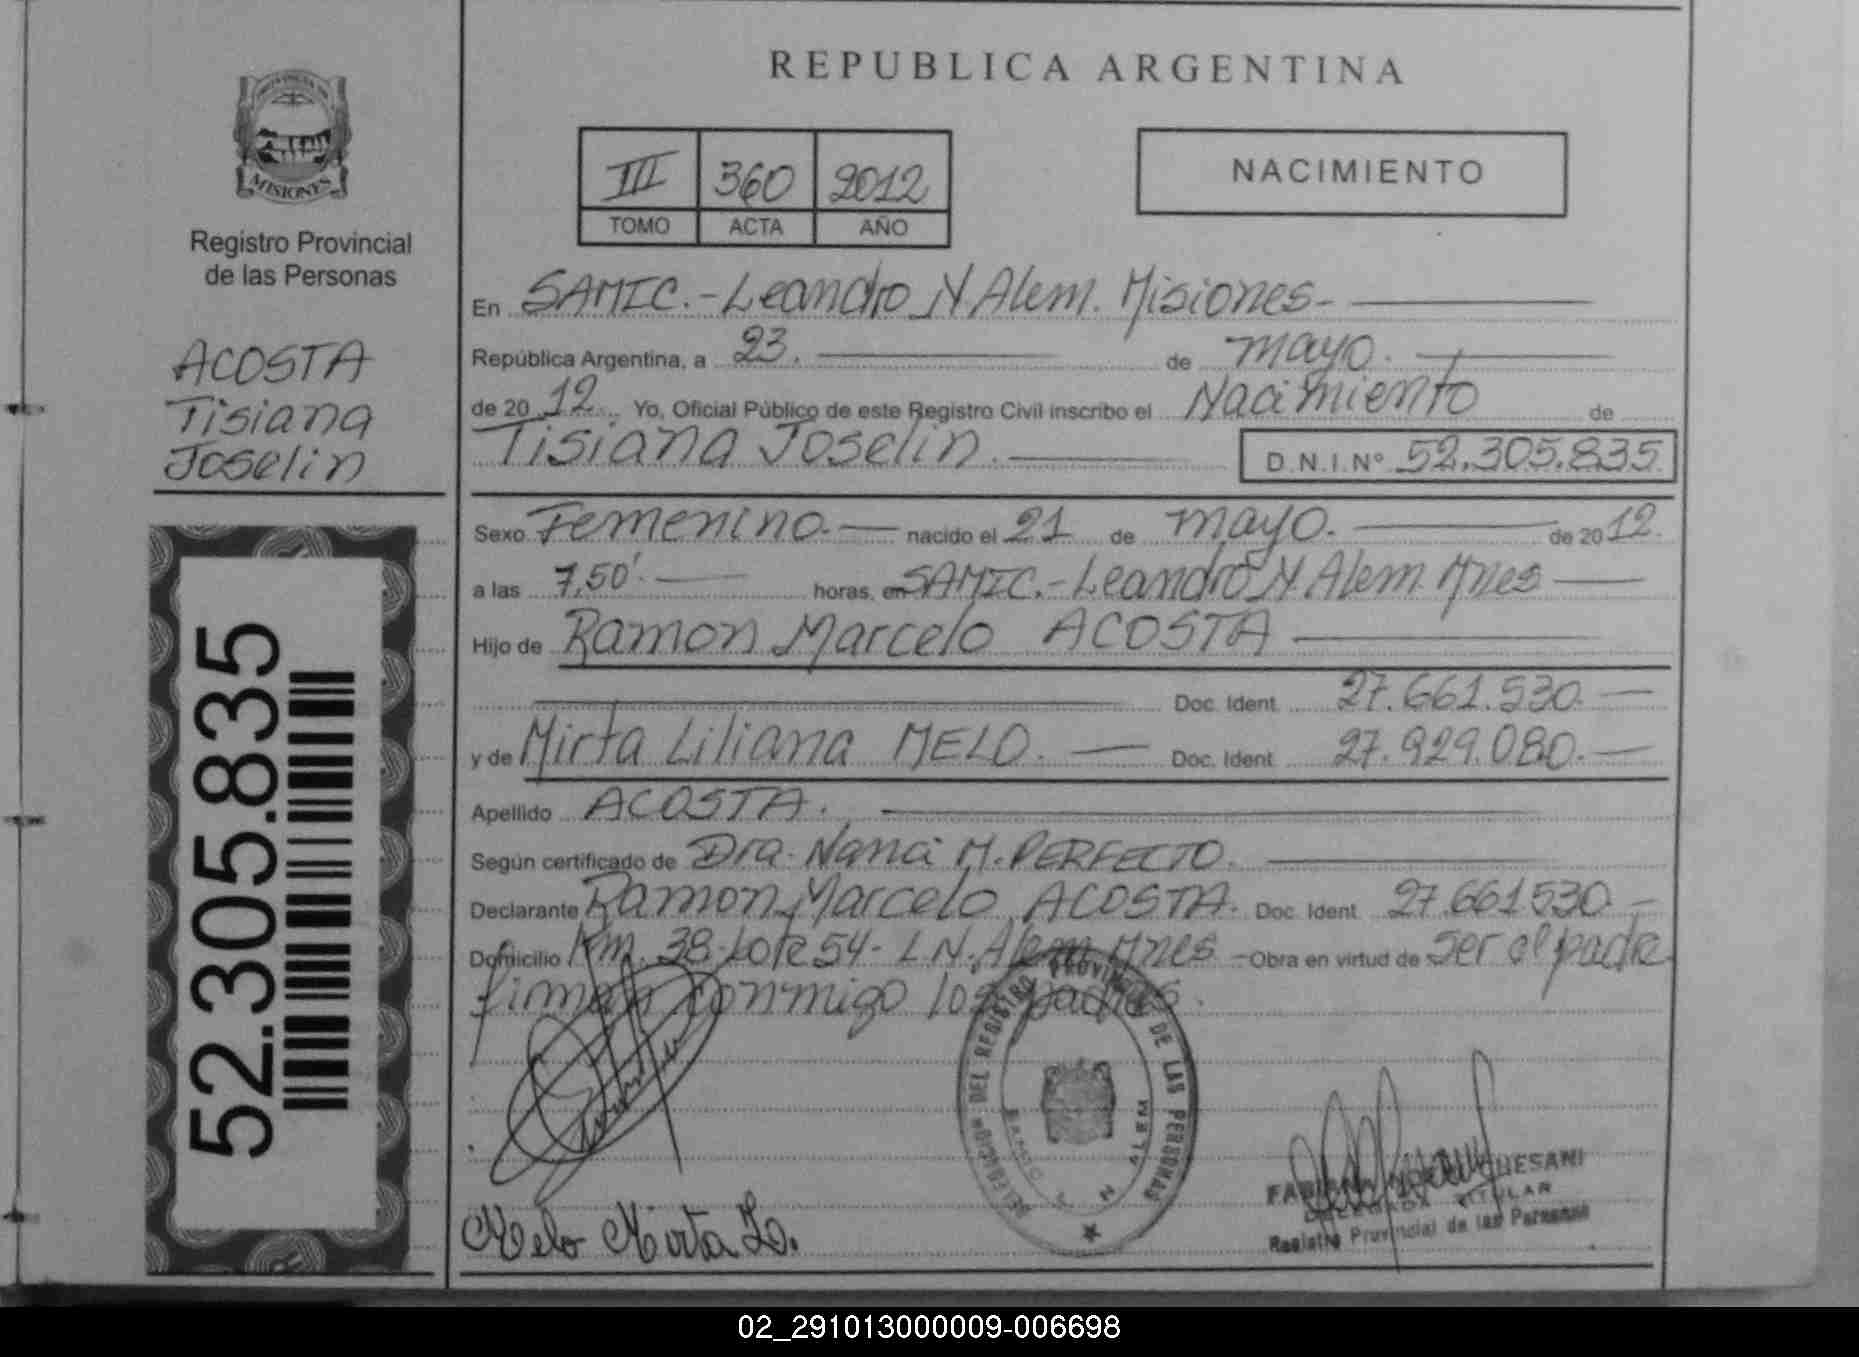 REPUBLICA ARGENTINA
MISIONES
Registro Provincial
de las Personas
ACOSTA
Tisiana
Joselin
52.305.835
III 360 2012
TOMO ACTA AÑO
NACIMIENTO
En SAMIC.-Leandro N Alem. Misiones-
República Argentina, a 23. de mayo.
de 2012 Yo, Oficial Público de este Registro Civil inscribo el Nacimiento de
Tisiana Joselin. D.N.I.Nº 52.305.835
Sexo Femenino.- nacido el 21 de mayo. de 2012.
a las 7,50'- horas, en SAMIC.-Leandro N. Alem. Mnes
Hijo de Ramon Marcelo ACOSTA
Doc. Ident. 27.661.530.-
y de Mirta Liliana MELO. - Doc. Ident. 27.929.080.-
Apellido ACOSTA.
Según certificado de Dra. Nanci M. PERFECTO.
Declarante Ramon Marcelo ACOSTA. Doc. Ident. 27.661530.-
Domicilio Km. 38-Lote 54- L.N. Alem Mnes - Obra en virtud de Ser el padre
firman conmigo los padres.
DEL REGISTRO PROVINCIAL DE LAS PERSONAS
N. ALEM
Melo Mirta L.
TITULAR
Registro Provincial de las Personas
02_291013000009-006698